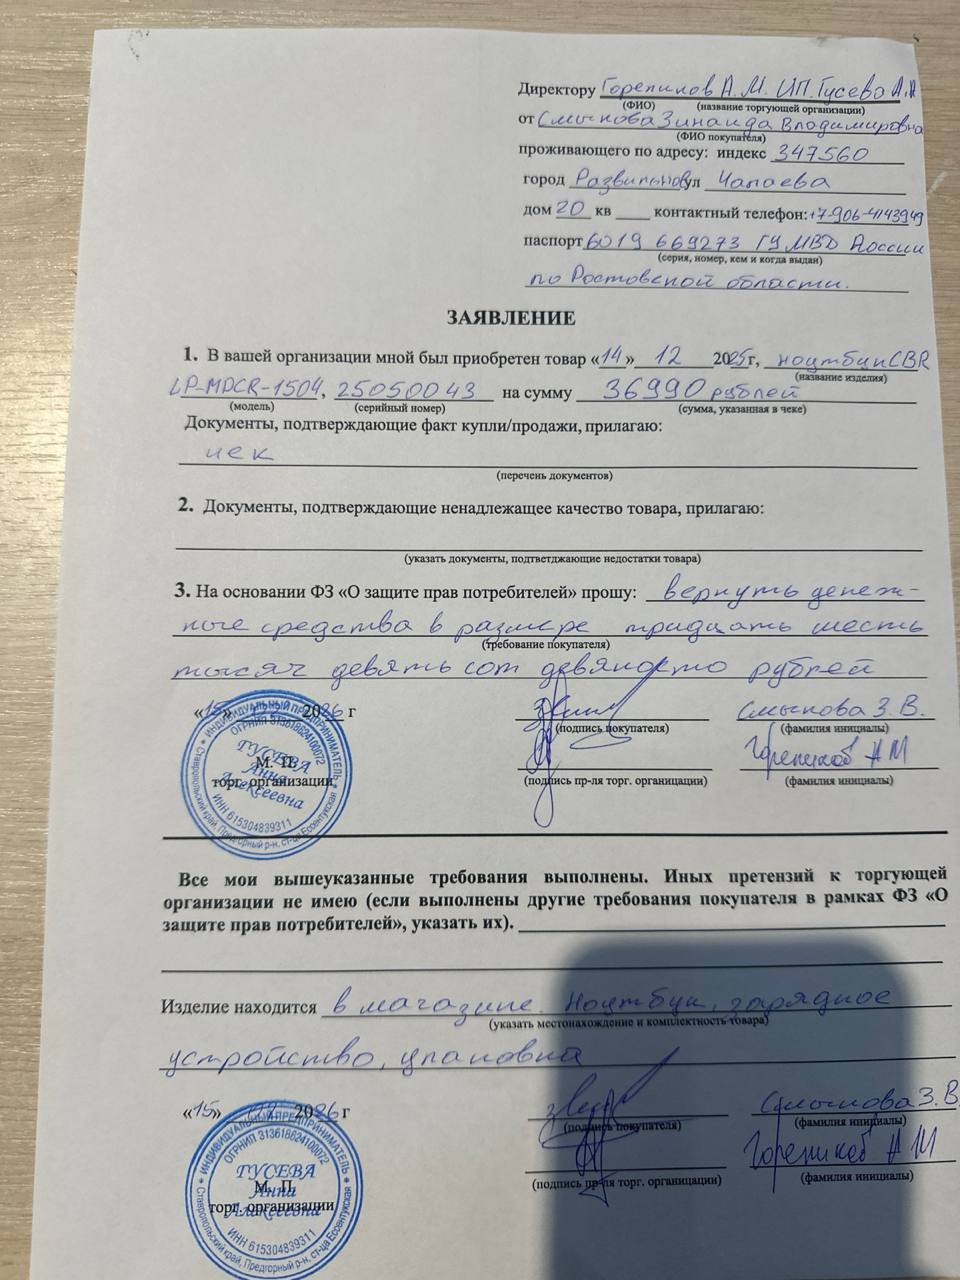 Директору Горепиков А.М. ИП. Гусева А.А
(ФИО) (название торгующей организации)
от Смыкова Зинаида Владимировна
(ФИО покупателя)
проживающего по адресу: индекс 347560
город Развильное ул Чапаева
дом 20 кв ____ контактный телефон: +7-906-4143949
паспорт 6019 669273 ГУ МВД России
(серия, номер, кем и когда выдан)
по Ростовской области.
ЗАЯВЛЕНИЕ
1. В вашей организации мной был приобретен товар «14» 12 2025г, ноутбук CBR
(название изделия)
LP-MDCR-1504, 25050043 на сумму 36990 рублей
(модель) (серийный номер) (сумма, указанная в чеке)
Документы, подтверждающие факт купли/продажи, прилагаю:
чек
(перечень документов)
2. Документы, подтверждающие ненадлежащее качество товара, прилагаю:
(указать документы, подтветджающие недостатки товара)
3. На основании ФЗ «О защите прав потребителей» прошу: вернуть денеж-
ные средства в размере тридцать шесть
(требование покупателя)
тысяч девять сот девяносто рублей
«15» 2026 г Смыкова З. В.
(подпись покупателя) (фамилия инициалы)
М. П. Горепиков А М
торг. организации (подпись пр-ля торг. органицации) (фамилия инициалы)
ИНДИВИДУАЛЬНЫЙ ПРЕДПРИНИМАТЕЛЬ
ОГРНИП 313618624100072
ГУСЕВА
Анна
Алексеевна
ИНН 615304839311
Ставропольский край, Предгорный р-н, ст-ца Ессентукская
Все мои вышеуказанные требования выполнены. Иных претензий к торгующей
организации не имею (если выполнены другие требования покупателя в рамках ФЗ «О
защите прав потребителей», указать их).
Изделие находится в магазине. Ноутбук, зарядное
(указать местонахождение и комплектность товара)
устройство, упаковка
«15» 2026 г Смыкова З. В.
(подпись покупателя) (фамилия инициалы)
М. П. Горепиков А М
торг. организации (подпись пр-ля торг. органицации) (фамилия инициалы)
ИНДИВИДУАЛЬНЫЙ ПРЕДПРИНИМАТЕЛЬ
ОГРНИП 313618624100072
ГУСЕВА
Анна
Алексеевна
ИНН 615304839311
Ставропольский край, Предгорный р-н, ст-ца Ессентукская